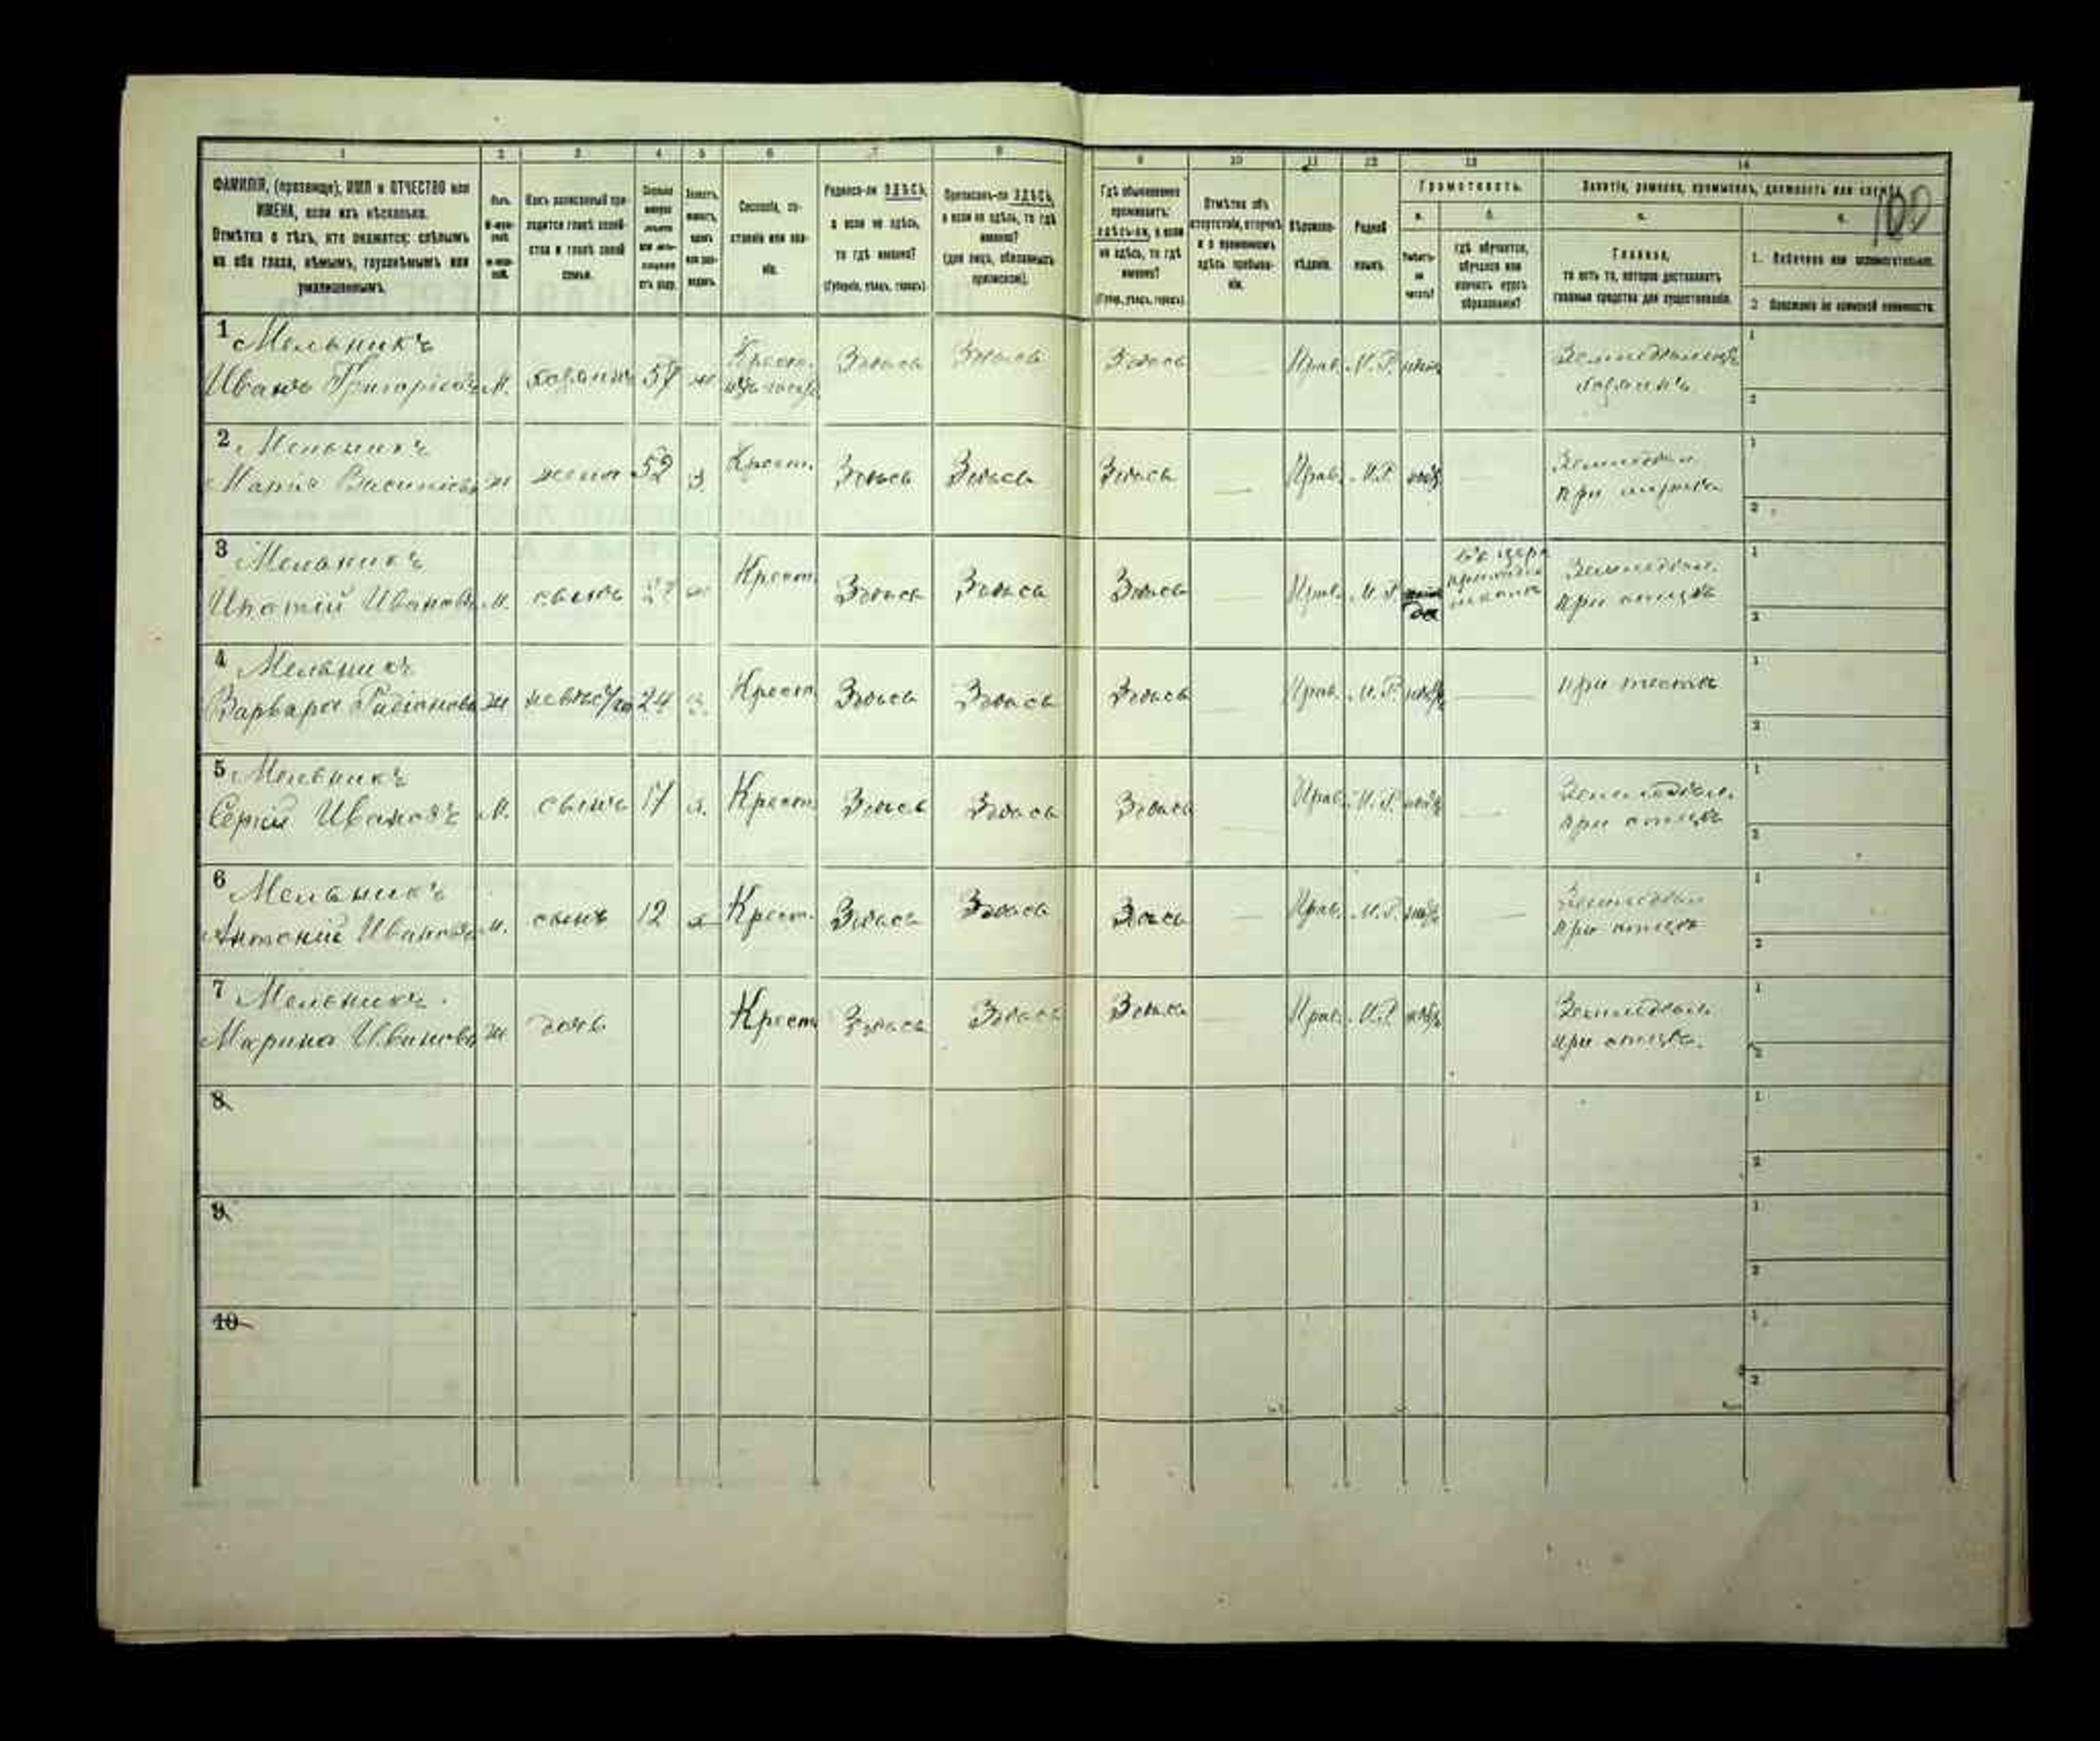 1 2 3 4 5 6 7 8 9 10 11 12 13 14
ФАМИЛІЯ, (прозвище), ИМЯ и ОТЧЕСТВО или
ИМЕНА, если ихъ нѣсколько.
Отмѣтка о тѣхъ, кто окажется: слѣпымъ
на оба глаза, нѣмымъ, глухонѣмымъ или
умалишеннымъ.
Полъ.
Какъ записанный при-
ходится главѣ хозяй-
ства и главѣ своей
семьи.
Сословіе, со-
стояніе или зва-
ніе.
Родился-ли ЗДѢСЬ,
а если не здѣсь,
то гдѣ именно?
(Губернія, уѣздъ, городъ)
Приписанъ-ли ЗДѢСЬ,
а если не здѣсь, то гдѣ
именно?
(для лицъ, обязанныхъ
припискою).
Гдѣ обыкновенно
проживаетъ:
здѣсь-ли, а если
не здѣсь, то гдѣ
именно?
(Губер., уѣздъ, городъ)
Отмѣтка объ
отсутствіи, отлучкѣ
и о временномъ
здѣсь пребыва-
ніи.
Вѣроиспо-
вѣданіе.
Родной
языкъ.
Грамотность.
а. б.
Умѣетъ-
ли
читать?
гдѣ обучается,
обучался или
кончилъ курсъ
образованія?
Занятіе, ремесло, промыселъ, должность или служба.
100
Главное,
то есть то, которое доставляетъ
главныя средства для существованія.
1. Побочное или вспомогательное.
2 Положеніе по воинской повинности.
1 Мельникъ
Иванъ Григорьевъ М. хозяинъ 57 Крест. Здѣсь Здѣсь Здѣсь Прав. М.Р. Земледѣлецъ
хозяинъ
2 Мельникъ
Марія Васильева ж жена 52 з. Крест. Здѣсь Здѣсь Здѣсь Прав. М.Р. Земледѣл.
при мужѣ
3 Мельникъ
Ипатій Ивановъ М. сынъ Крест. Здѣсь Здѣсь Здѣсь Прав. М.Р. да въ церк
приходск
школѣ Земледѣл.
при отцѣ
4 Мельникъ
Варвара Родіонова ж 24 з. Крест Здѣсь Здѣсь Здѣсь Прав. М.Р. при тестѣ
5 Мельникъ
Сергій Ивановъ М. сынъ 17 х. Крест Здѣсь Здѣсь Здѣсь Прав. М.Р. Земледѣл.
при отцѣ
6 Мельникъ
Антоній Ивановъ М. сынъ 12 х Крест. Здѣсь Здѣсь Здѣсь Прав. М.Р. Земледѣл
при отцѣ
7 Мельникъ
Марина Иванова ж дочь Крест Здѣсь Здѣсь Здѣсь Прав. М.Р. Земледѣл.
при отцѣ.
8
9
10